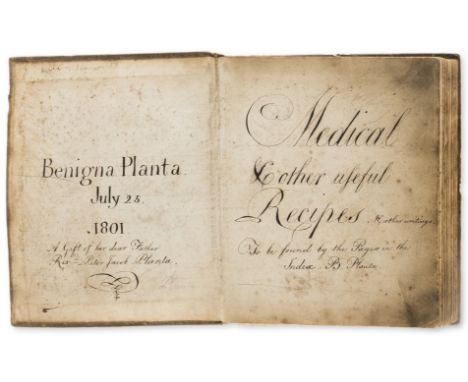 Benigna Planta
July 25
1801
A Gift of her dear Father
Revd. Peter Jacob Planta.
Medical
& other useful
Recipes & other writings
To be found by the Pages in the
Index B. Planta